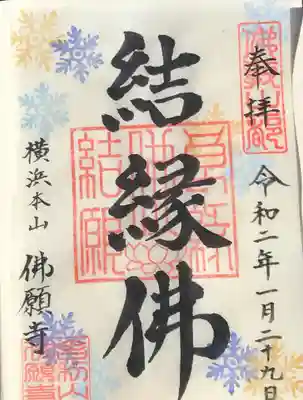 奉拝
令和二年一月二十九日
結縁佛
横浜本山 佛願寺